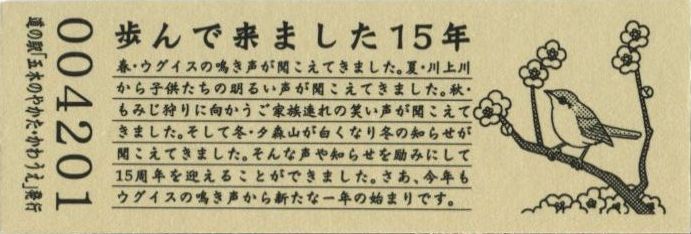 歩んで来ました15年
春・ウグイスの鳴き声が聞こえてきました。夏・川上川
から子供たちの明るい声が聞こえてきました。秋・
もみじ狩りに向かうご家族連れの笑い声が聞こえて
きました。そして冬・夕森山が白くなり冬の知らせが
聞こえてきました。そんな声や知らせを励みにして
15周年を迎えることができました。さあ、今年も
ウグイスの鳴き声から新たな一年の始まりです。
004201
道の駅「五木のやかた・かわうえ」発行